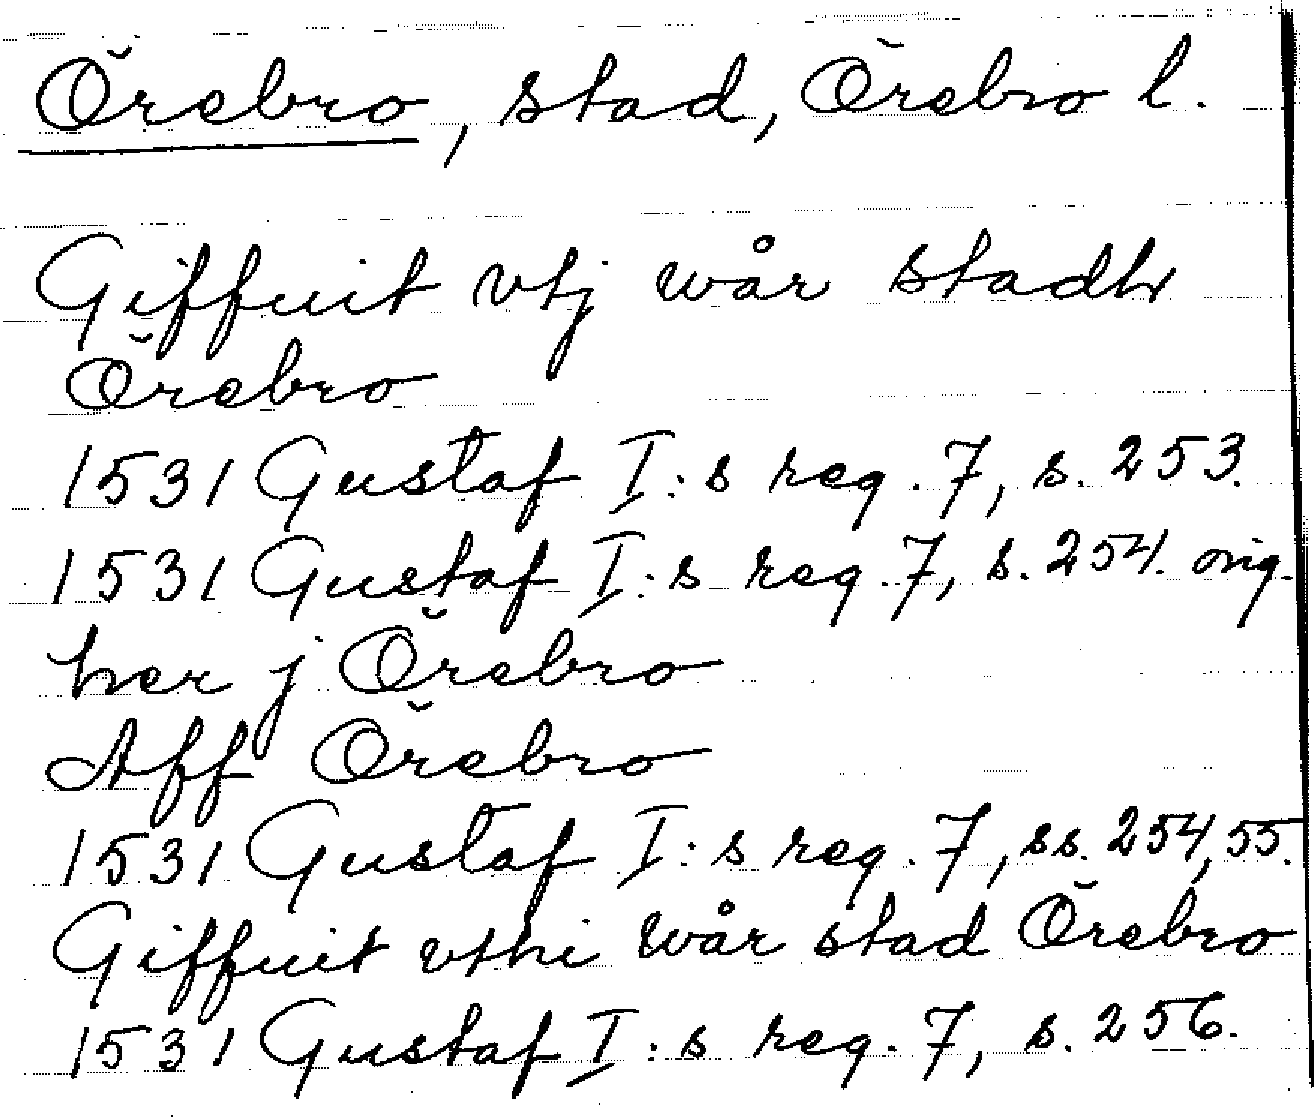 Örebro, stad, Örebro l.
Giffuit vtj wår stadh
Örebro
1531 Gustaf I:s reg. 7, s. 253.
1531 Gustaf I:s reg. 7, s. 254. orig.
her j Örebro
Aff Örebro
1531 Gustaf I:s reg. 7, ss. 254, 55.
Giffuit vthi wår stad Örebro
1531 Gustaf I:s reg. 7, s. 256.